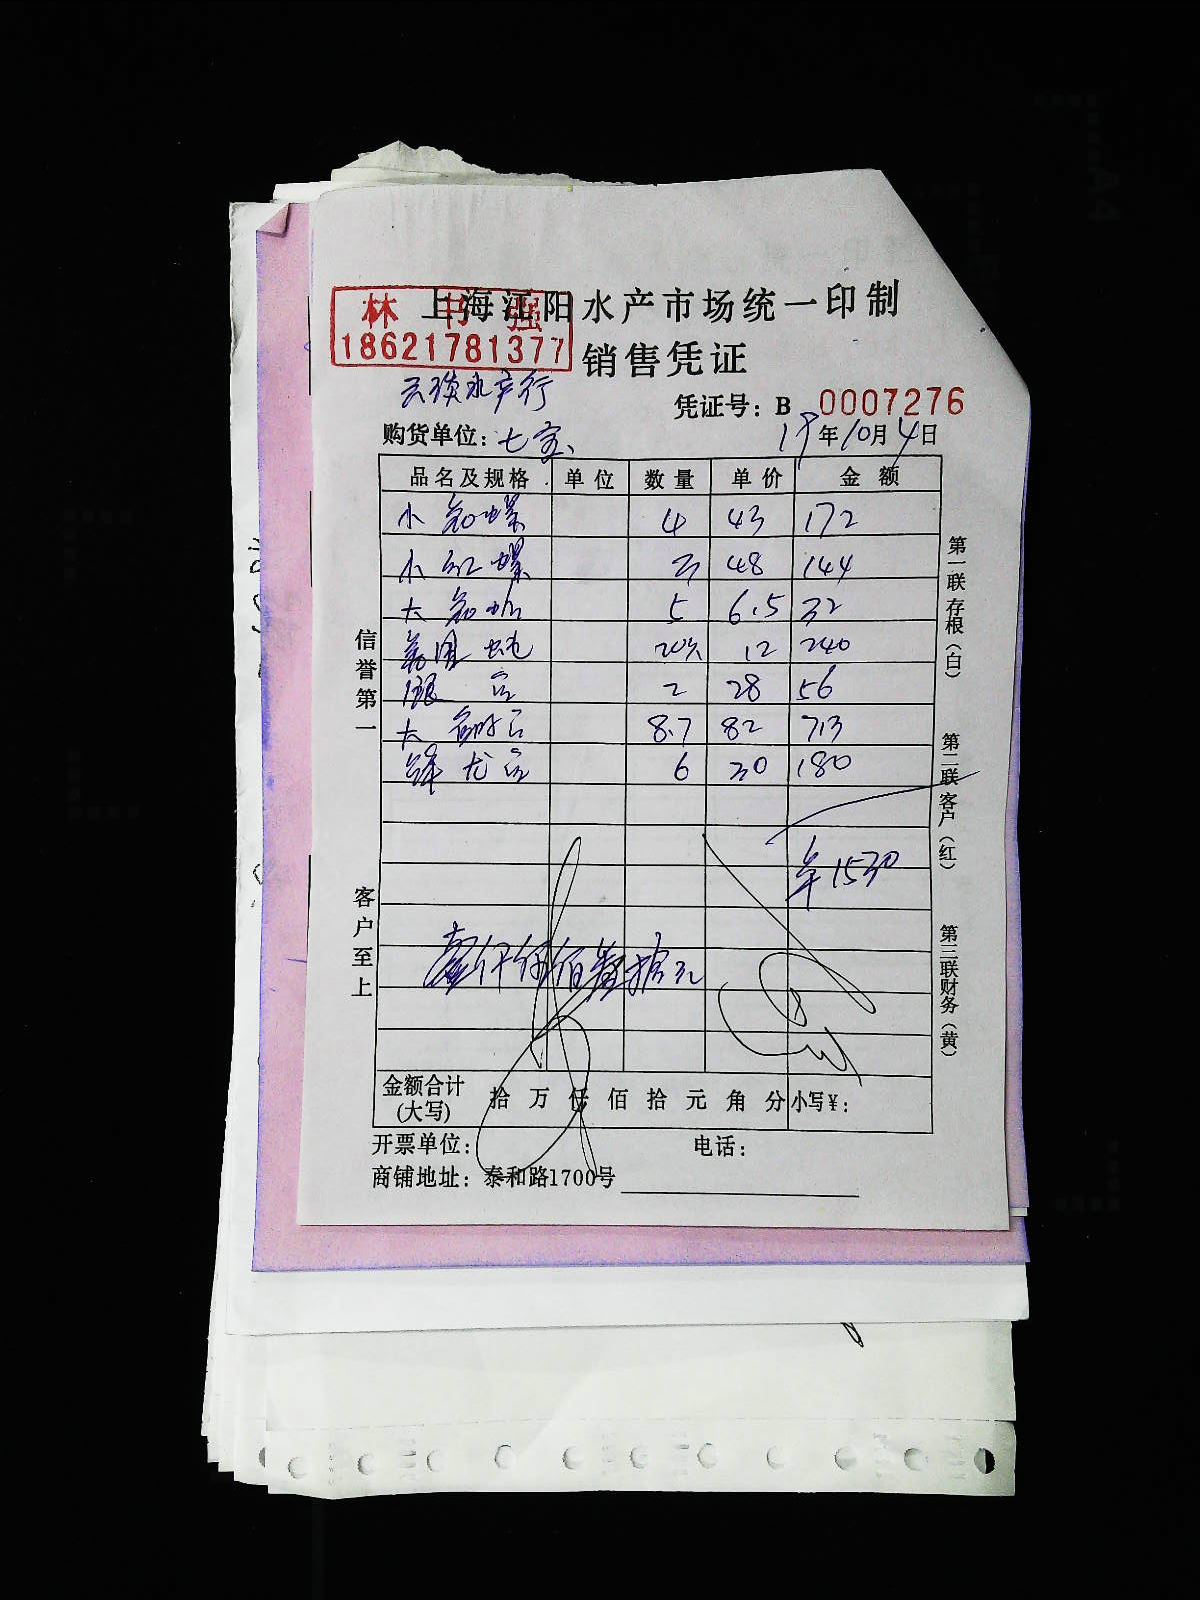 上海江阳水产市场统一印制
林书强
18621781377
销售凭证
水产行
凭证号：B 0007276
购货单位：七宝
19年10月4日
品名及规格 单位 数量 单价 金额
小 螺 4 43 172
小红螺 3 48 144
大 5 6.5 32
20只 12 240
2 28 56
大 8.7 82 713
龙 6 30 180
¥1530
壹仟伍佰叁拾元
金额合计
(大写)
拾 万 仟 佰 拾 元 角 分 小写¥：
开票单位： 电话：
商铺地址：泰和路1700号
信誉第一
客户至上
第一联存根（白）
第二联客户（红）
第三联财务（黄）